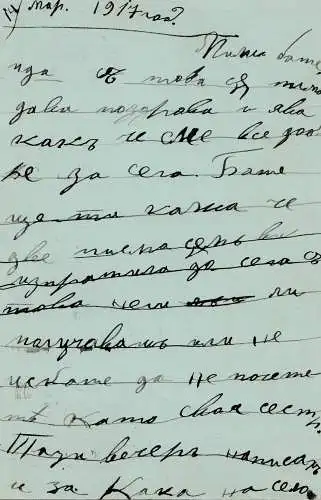 14 мар. 1917 год?
Пиша бате,
ида с това
дава поздрава и ява
какъ че сме все здра
ве за сега. Бате
ще ти кажа че
две писма съмъ ви
изпратила до сега с
това чели ли
получавашъ или не
искаше да не почете
тъ като своя сест
Тази вечеръ написах
и за Кака на село